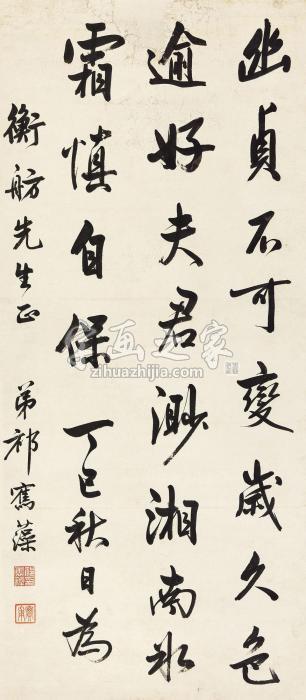 幽貞不可變歲久色
逾好夫君渺湘南冰
霜慎自保 丁巳秋日為
衡舫先生正 弟祁寯藻
字画之家
zihuazhijia.com